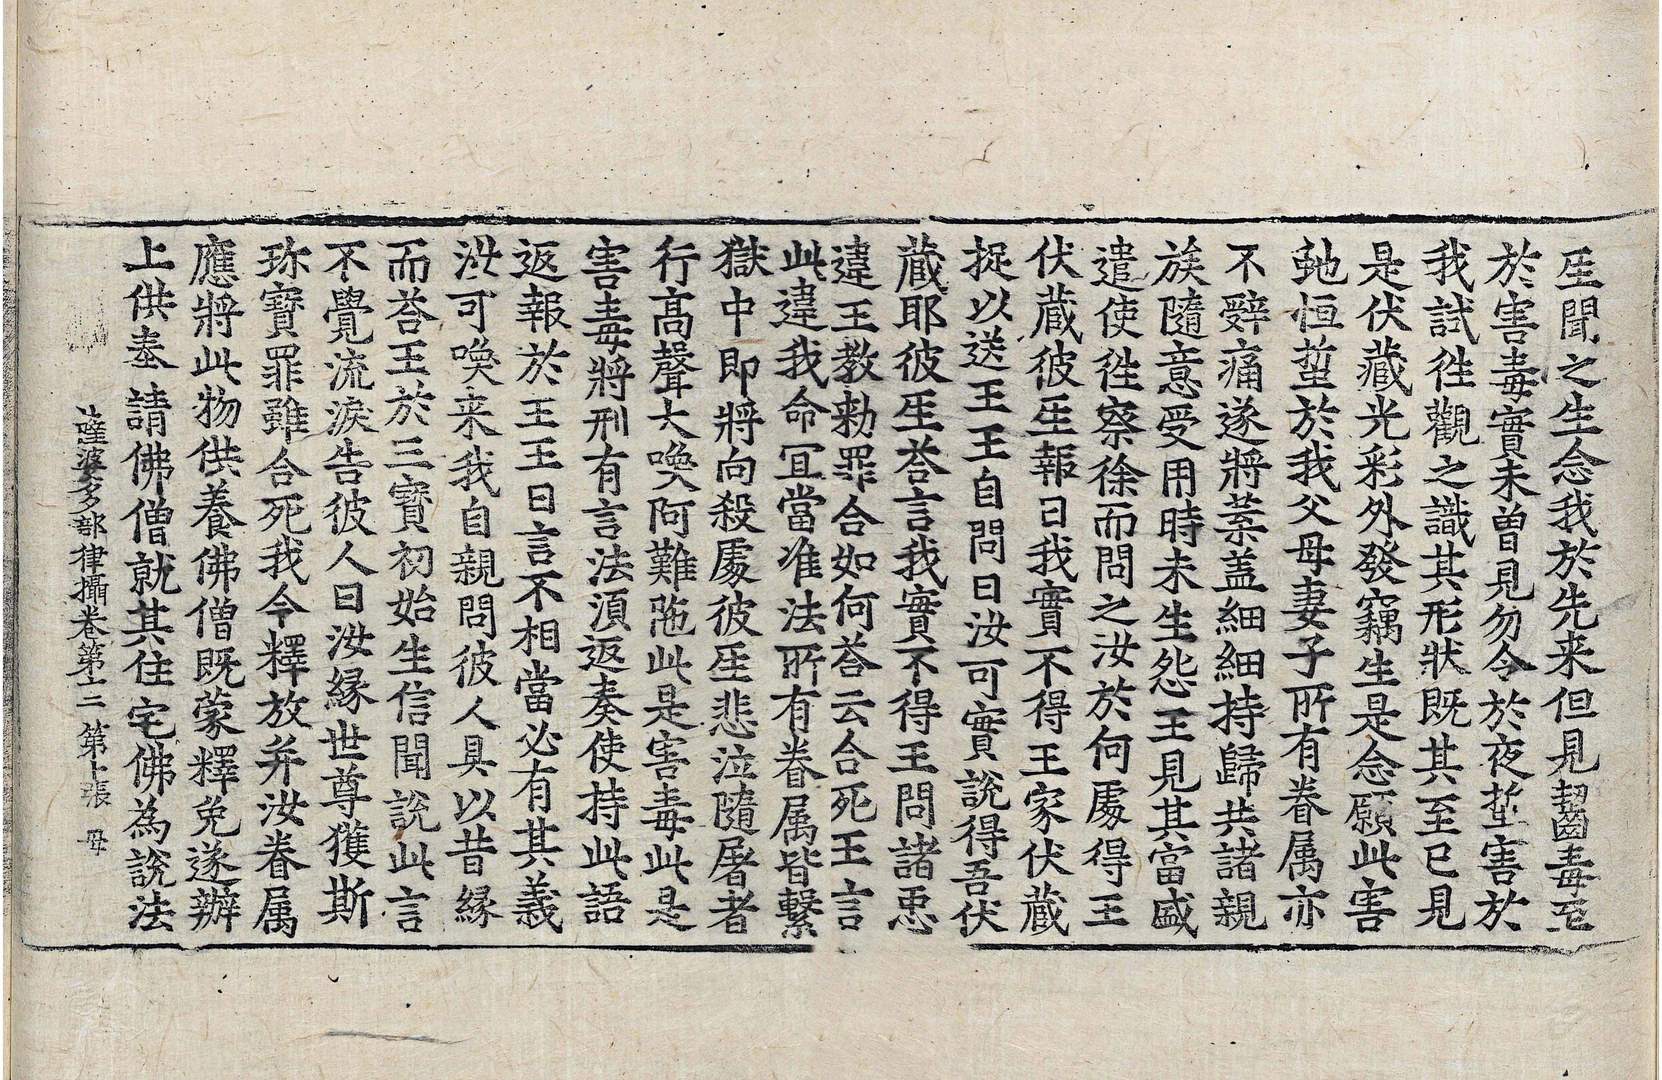 𤯔聞之生念我於先来但見齧毒至
於害毒實未曾見勿令於夜蜇害於
我試徃觀之識其形狀既其至已見
是伏藏光彩外發竊生是念願此害
虵恒蜇於我父母妻子所有眷属亦
不辤痛遂將葉盖細細持歸共諸親
族隨意受用時未生怨王見其富盛
遣使徃察徐而問之汝於何處得王
伏藏彼𤯔報曰我實不得王家伏藏
捉以送王王自問曰汝可實說得吾伏
藏耶彼𤯔荅言我實不得王問諸𢘑
違王教勑罪合如何荅云合死王言
此違我命冝當准法所有眷属皆繫
獄中即將向殺處彼𤯔悲泣隨屠者
行高聲大喚阿難陁此是害毒此是
害毒將刑有言法湏返奏使持此語
返報於王王曰言不相當必有其義
汝可喚来我自親問彼人具以昔緣
而荅王於三寶初始生信聞說此言
不覺流淚告彼人曰汝緣世尊獲斯
珎寶罪雖合死我今釋放并汝眷属
應將此物供養佛僧既蒙釋免遂辦
上供奉請佛僧就其住宅佛為說法
薩婆多部律攝卷第十二 第十張 母